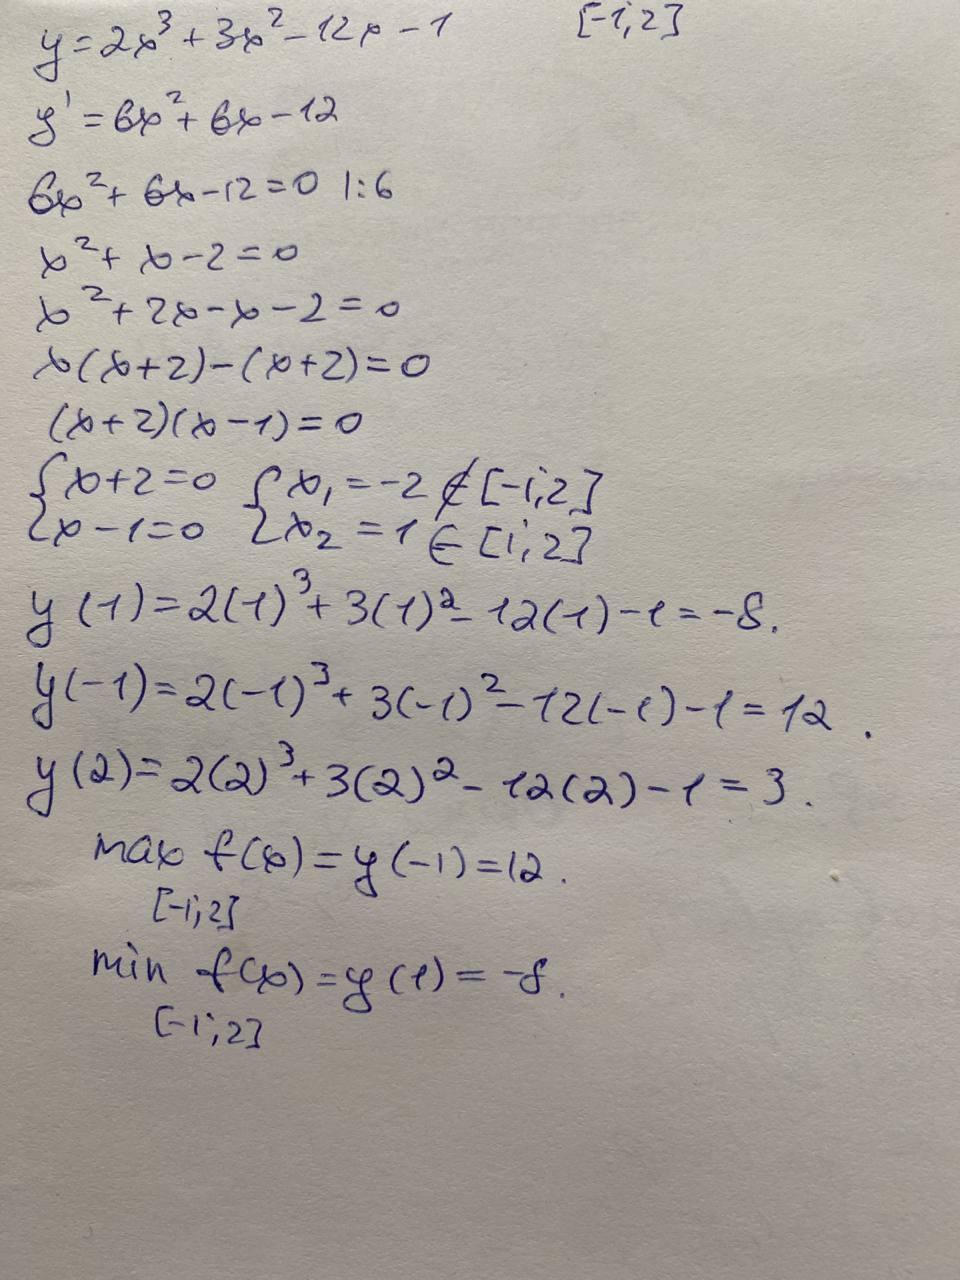 y = 2x³ + 3x² - 12x - 1 [-1; 2]
y' = 6x² + 6x - 12
6x² + 6x - 12 = 0 |:6
x² + x - 2 = 0
x² + 2x - x - 2 = 0
x(x+2) - (x+2) = 0
(x+2)(x-1) = 0
{x+2=0 {x₁ = -2 ∉ [-1; 2]
{x-1=0 {x₂ = 1 ∈ [1; 2]
y(1) = 2(1)³ + 3(1)² - 12(1) - 1 = -8.
y(-1) = 2(-1)³ + 3(-1)² - 12(-1) - 1 = 12.
y(2) = 2(2)³ + 3(2)² - 12(2) - 1 = 3.
max f(x) = y(-1) = 12.
[-1; 2]
min f(x) = y(1) = -8.
[-1; 2]